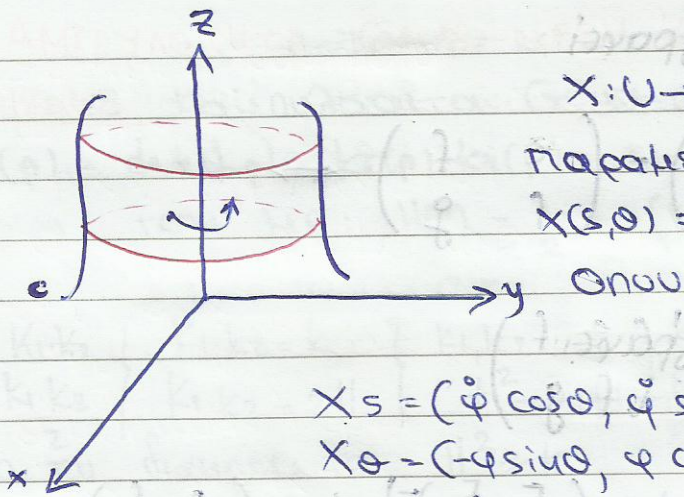 z
X: U→
παραμε
X(s,θ) =
c
y
όπου
Xs = (φ̇ cosθ, φ̇ s
Xθ = (-φsinθ, φ c
x